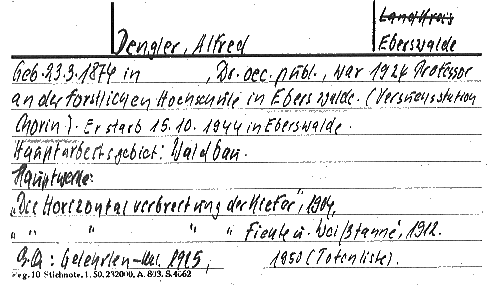 Landkreis
Dengler, Alfred
Eberswalde
Geb. 23.3.1874 in , Dr. oec. publ., war 1924 Professor
an der forstlichen Hochschule in Eberswalde. (Versuchsstation
Chorin). Er starb 15.10.1944 in Eberswalde.
Hauptarbeitsgebiet: Waldbau.
Hauptwerke:
„Die Horizontalverbreitung der Kiefer", 1904,
" " " " Fichte u. Weißtanne", 1912.
Gelehrten-Kal. 1925, 1950 (Totenliste).
Reg. 10 Stichnote. 1. 50. 232000. A. 803. S. 4062